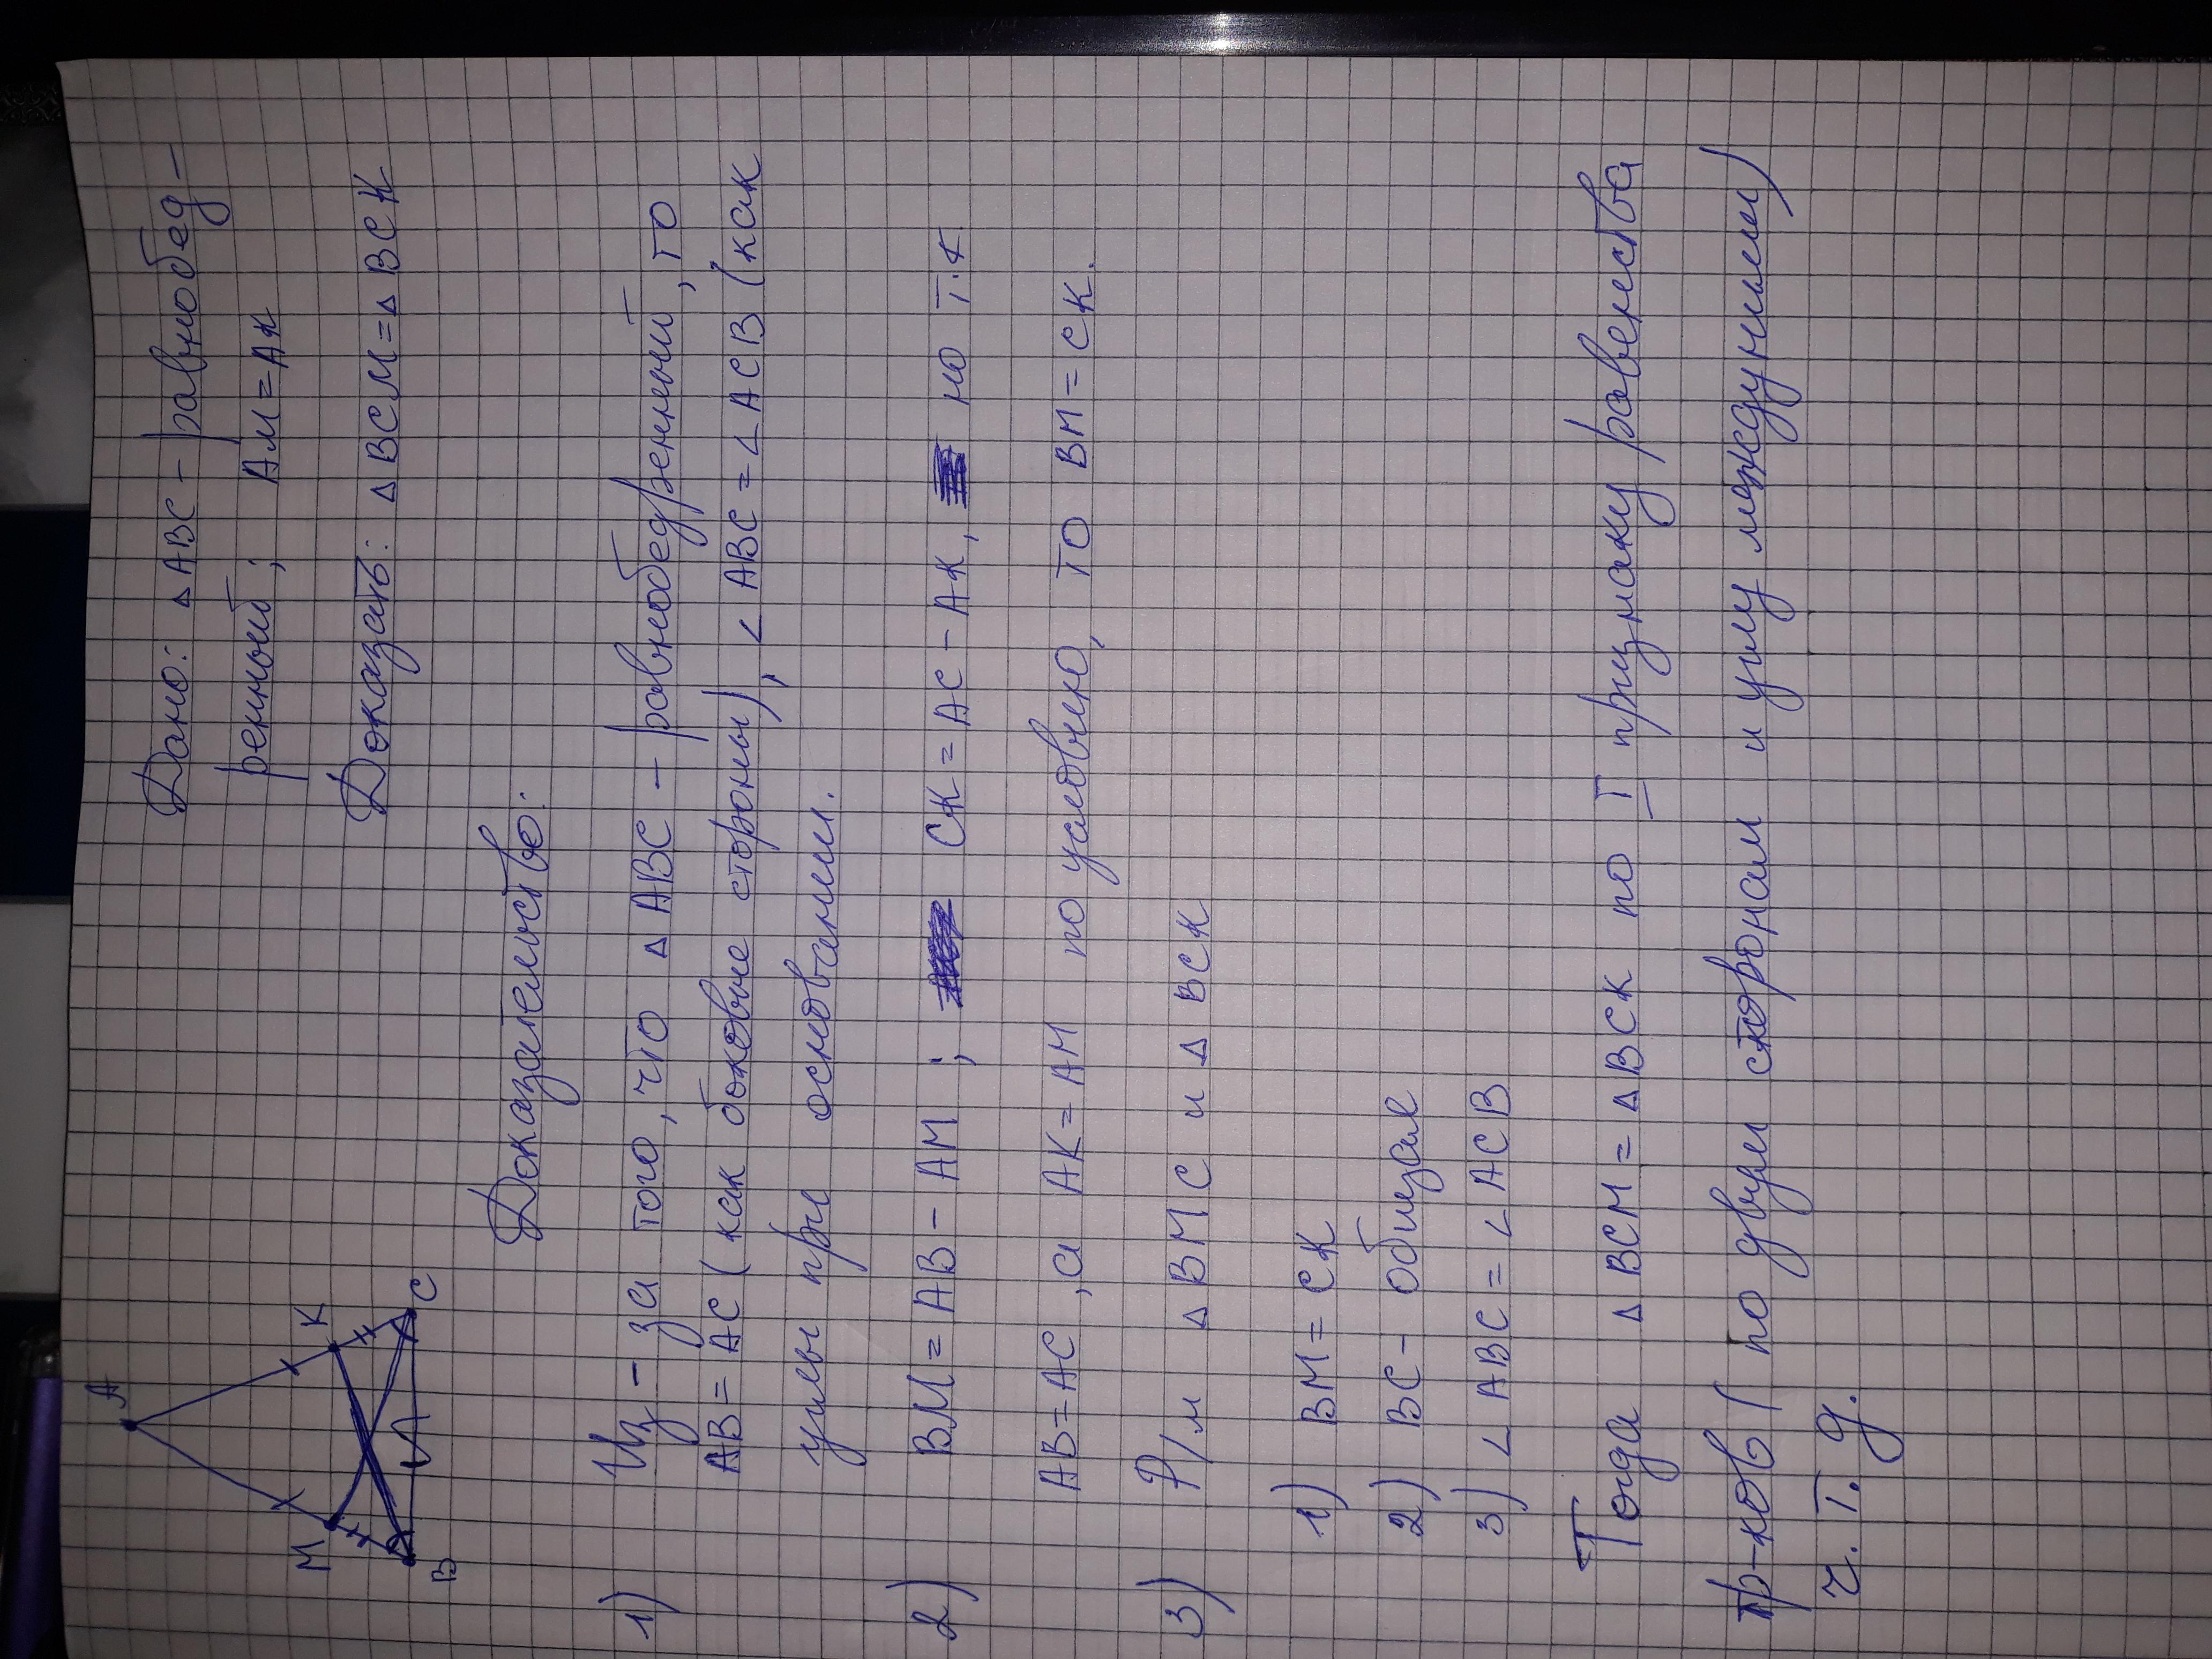 A
M
K
B
C
Дано: △ABC - равнобед-
ренный; AM=AK
Доказать: △BCM=△BCK
Доказательство:
1) Из-за того, что △ABC - равнобедренный, то
AB=AC (как боковые стороны), ∠ABC=∠ACB (как
углы при основании.
2) BM=AB-AM; CK=AC-AK, но т.к
AB=AC, а AK=AM по условию, то BM=CK.
3) Р/м △BMC и △BCK
1) BM=CK
2) BC - общая
3) ∠ABC=∠ACB
Тогда △BCM=△BCK по I признаку равенства
тр-ков (по двум сторонам и углу между ними)
ч.т.д.